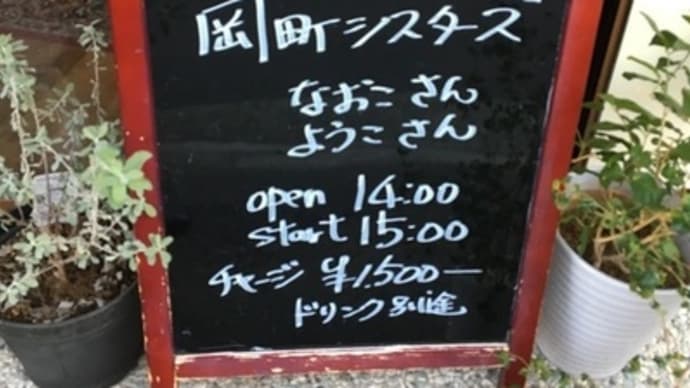 岡町シスターズ
なおこさん
ようこさん
open 14:00
start 15:00
チャージ ¥1,500—
ドリンク別途